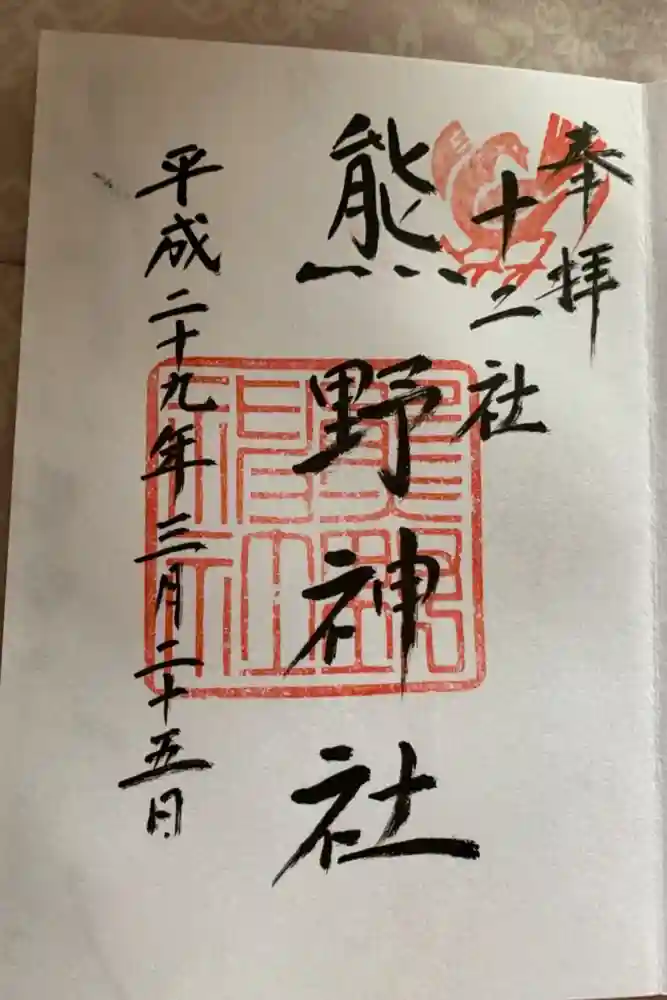 奉拝
十二社
熊野神社
平成二十九年三月二十五日